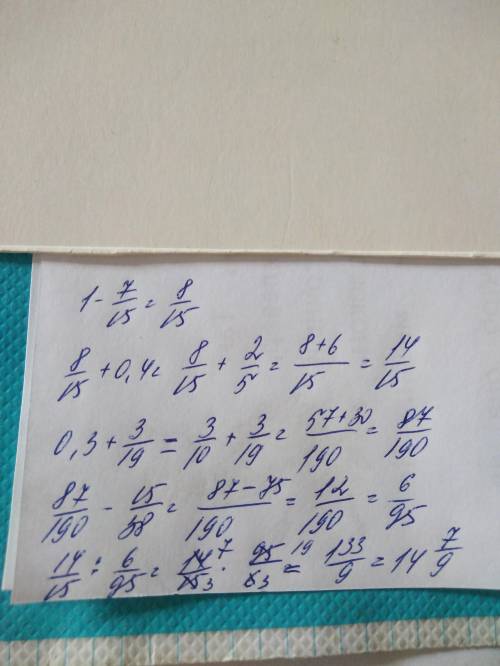 1 - 7/15 = 8/15
8/15 + 0,4 = 8/15 + 2/5 = 8+6/15 = 14/15
0,3 + 3/19 = 3/10 + 3/19 = 57+30/190 = 87/190
87/190 - 15/38 = 87-75/190 = 12/190 = 6/95
14/15 : 6/95 = 14 7/15 3 · 95 19/6 3 = 133/9 = 14 7/9